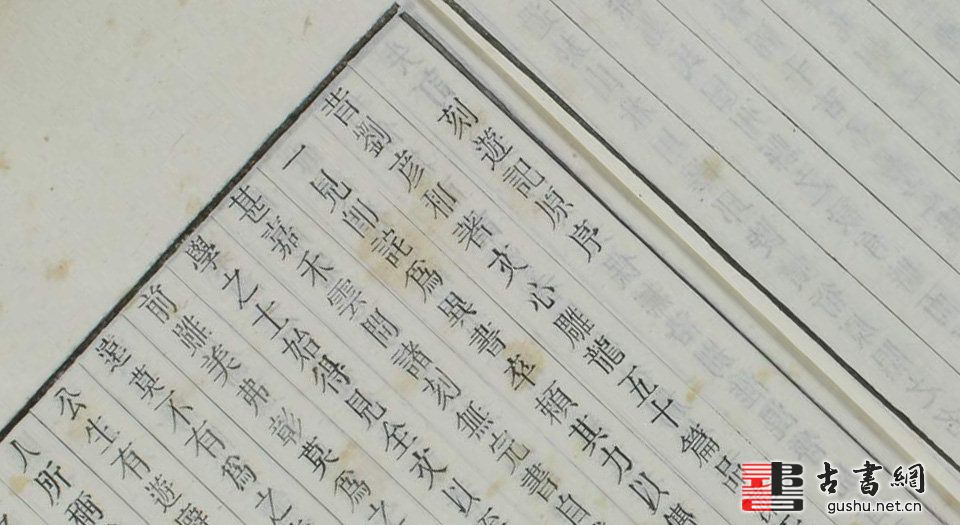 刻遊記原序
昔劉彥和著文心雕龍五十篇品
一見即詫為異書卒賴其力以傳
甚嘉禾雲間諸刻無完書自
學之士始得見全文以
前雖美弗彰莫為之
遠莫不有為之
公生有遊癖
人所稱
古書網
gushu.net.cn